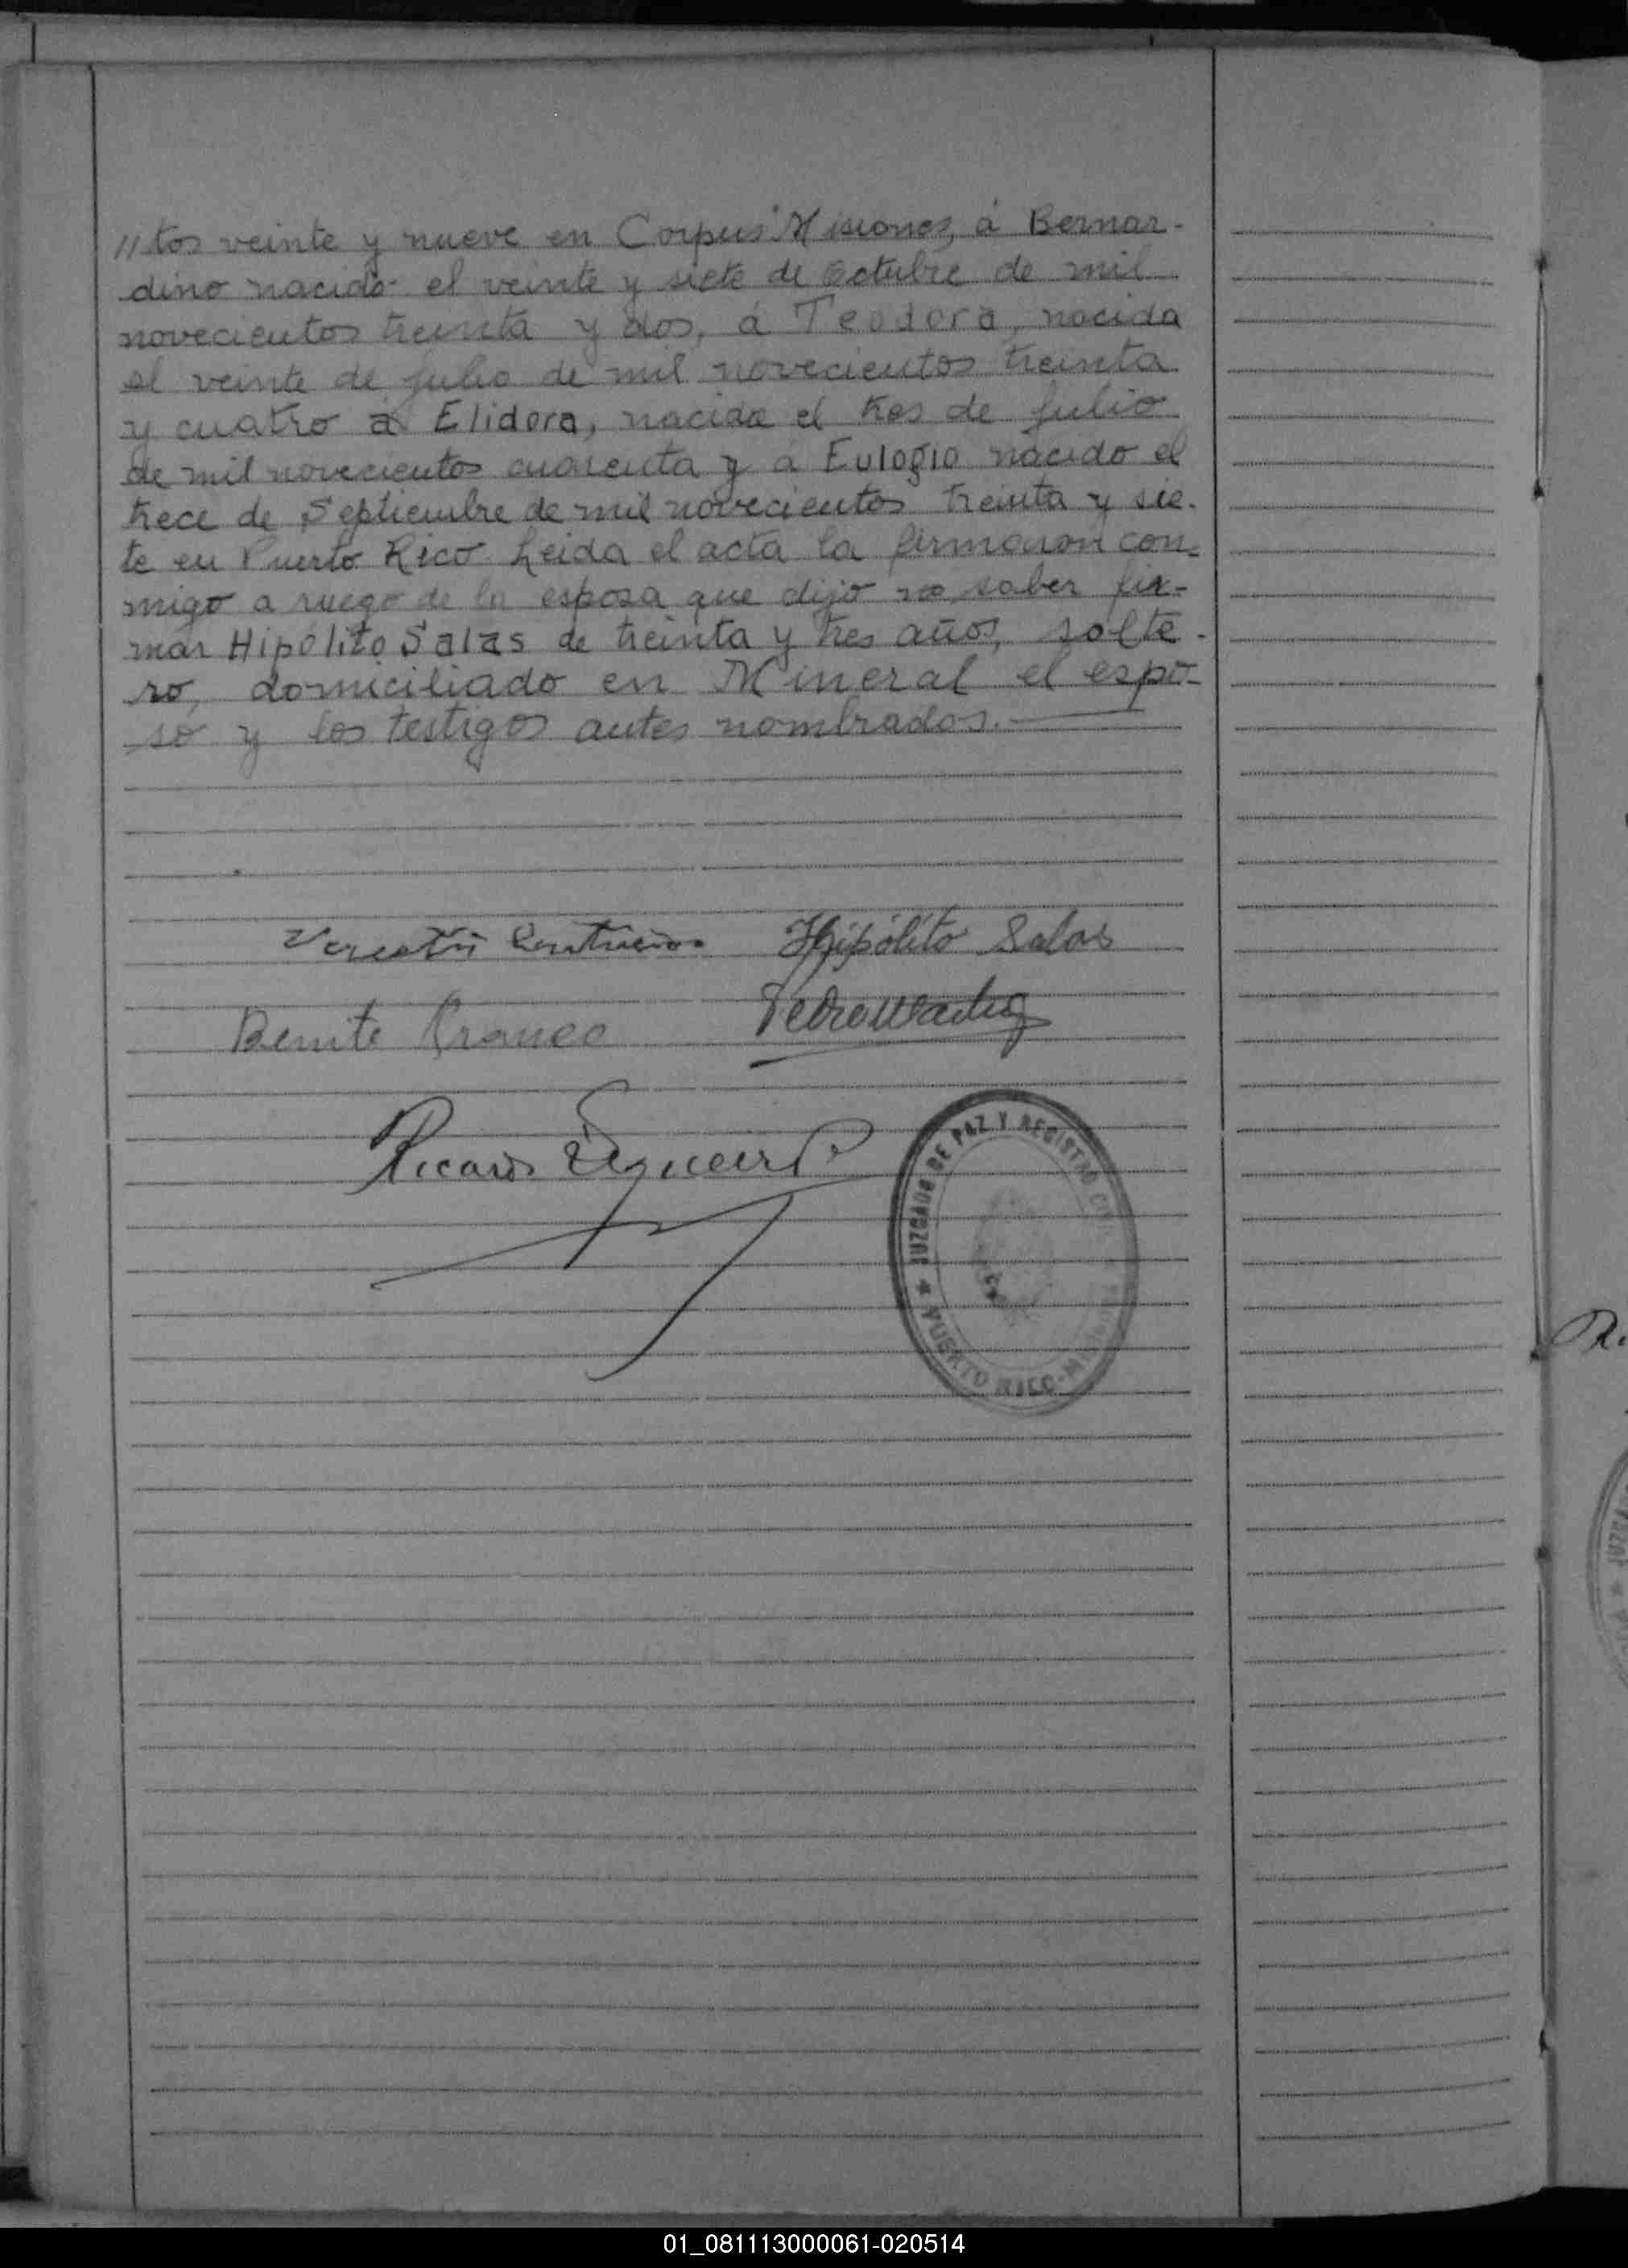 //tos veinte y nueve en Corpus Misiones, á Bernar-
dino nacido el veinte y siete de Octubre de mil
novecientos treinta y dos, á Teodora, nacida
el veinte de Julio de mil novecientos treinta
y cuatro á Elidora, nacida el tres de Julio
de mil novecientos cuarenta y á Eulogio nacido el
trece de Septiembre de mil novecientos treinta y sie-
te en Puerto Rico. Leida el acta la firmaron con-
migo a ruego de la esposa que dijo no saber fir-
mar Hipólito Salas de treinta y tres años, solte-
ro, domiciliado en Mineral el espo-
so y los testigos antes nombrados.
Hipólito Salas
Benito Franco
Pedro
Ricardo
JUZGADO DE PAZ Y REGISTRO CIVIL
★ PUERTO RICO-
01_081113000061-020514